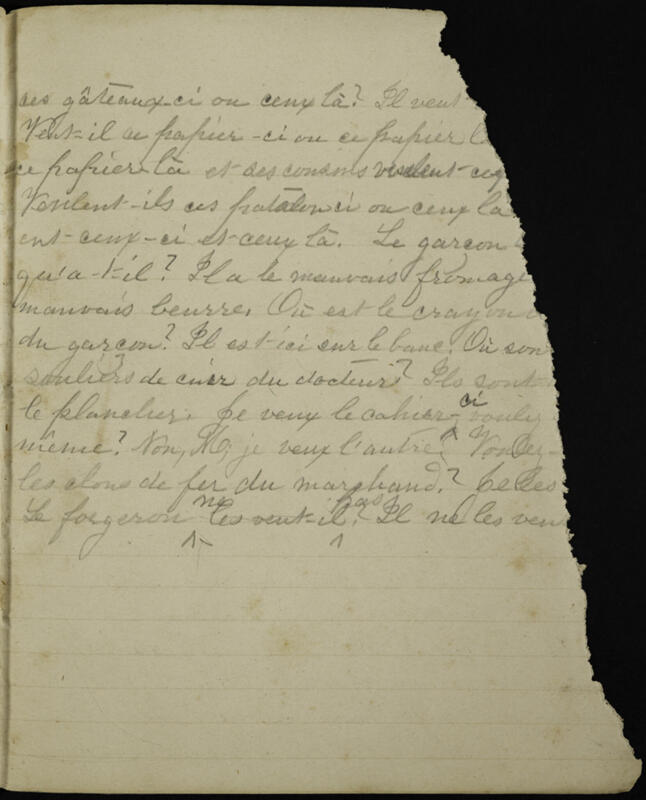 ces gâteaux-ci ou ceux là? Il veut
Veut-il ce papier-ci ou ce papier
ce papier-là et
Veulent-ils ces ci ou ceux là
ent-ceux-ci et-ceux là. Le garçon
qu'a-t-il? Il a le mauvais fromage
mauvais beurre. Où est le crayon
du garçon? Il est ici sur le banc. Où son
souliers de cuir du docteur? Ils sont
le plancher. Je veux le cahier-ci
même? Non, M, je veux l'autre. Voulez-
les clous de fer du marchand? Je les
Le forgeron ne les veut-il pas? Il ne les veu